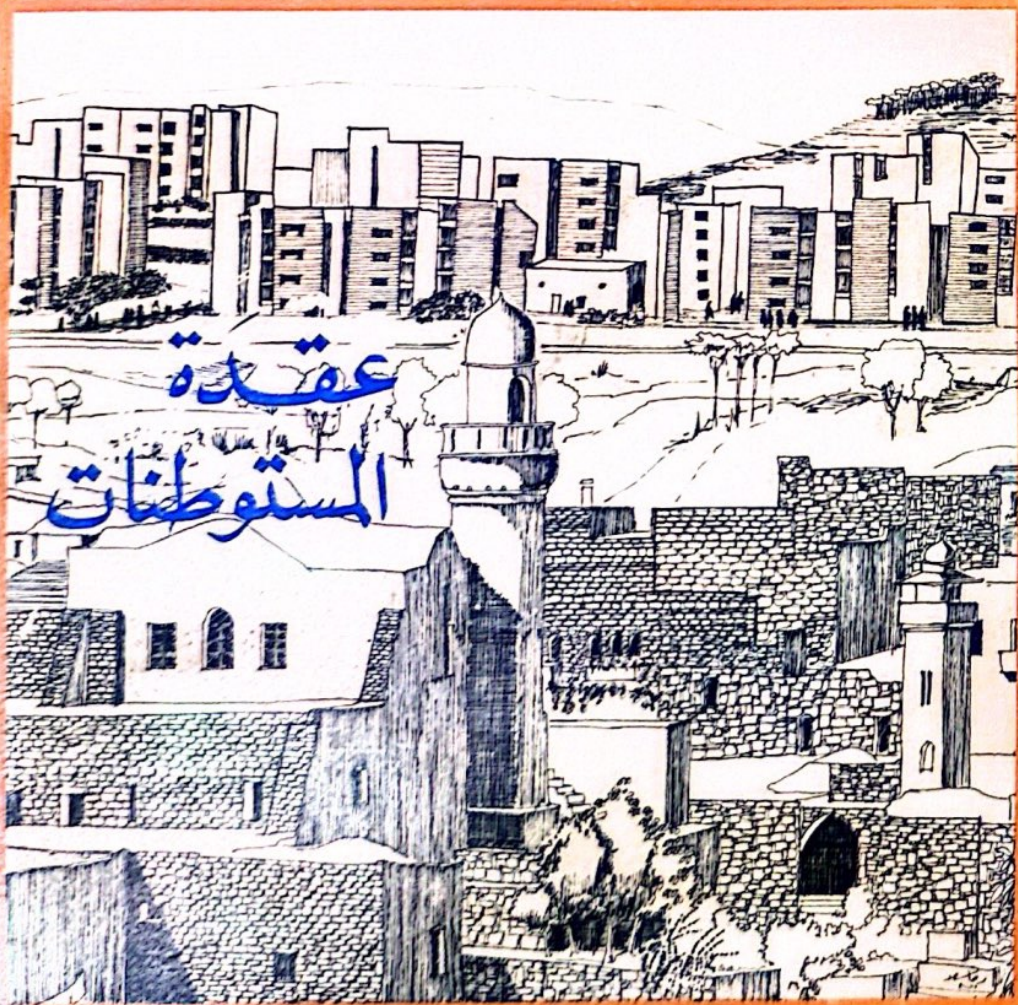 عقدة
المستوطنات